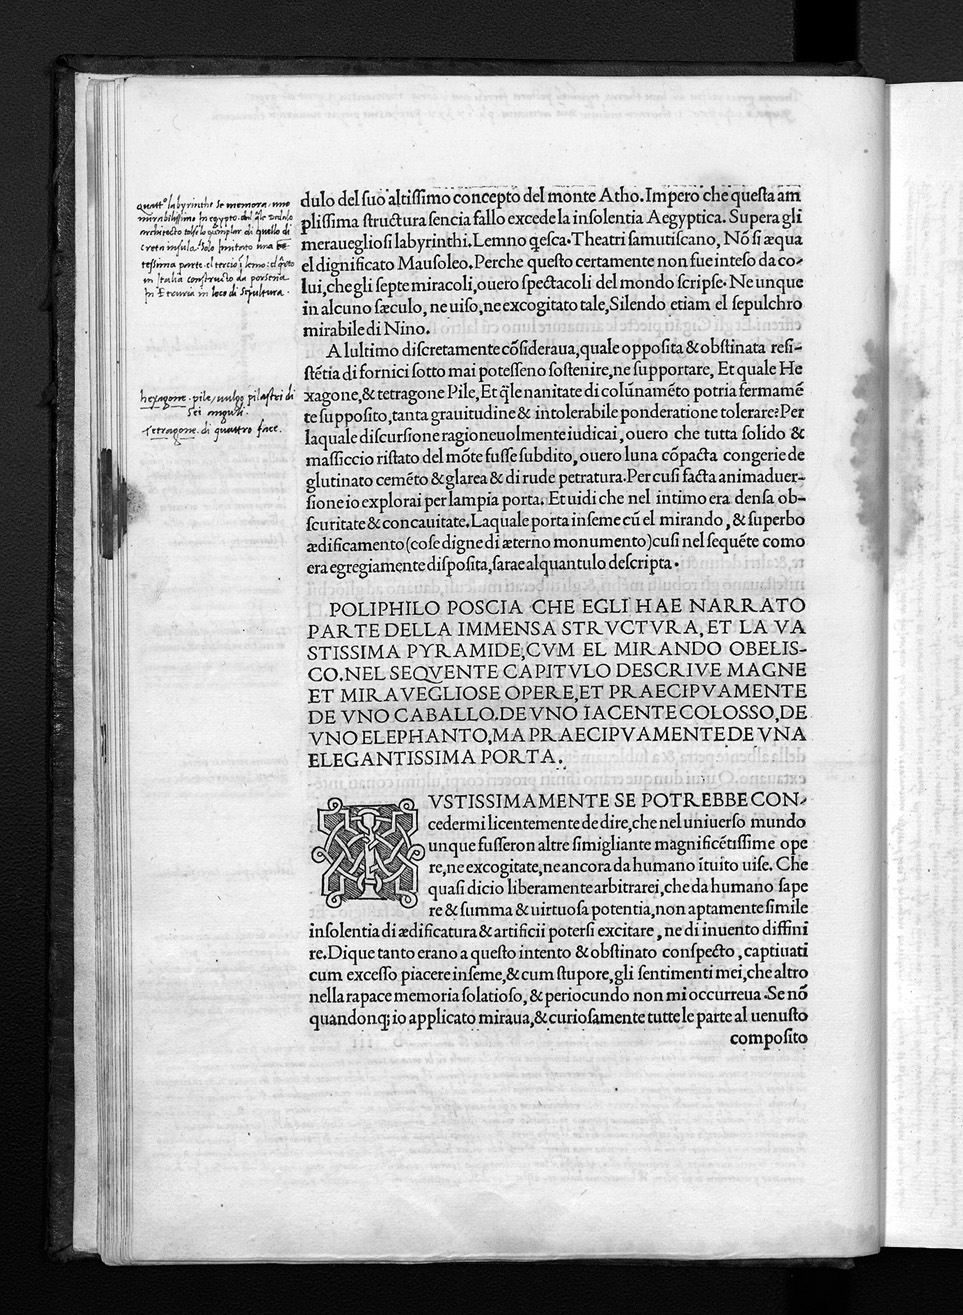 quatt° labyrinthi se memora. uno
mirabilissimo In egypto. dal q̃le dedalo
architecto tolse lo exemplar di quello di
creta insula. solo Imitato una
tessima parte. el tercio i lemo. el q̃rto
in Italia constructo da porsena
In Etruria in loco di sepultura.
hexagone. pile, uulgo pilastri di
sei anguli.
Tetragone. di quattro face.
dulo del ſuo altiſſimo concepto del monte Atho. Impero che queſta am
pliſſima ſtructura ſencia fallo excede la inſolentia Aegyptica. Supera gli
meraueglioſi labyrinthi. Lemno qeſca. Theatri ſamutiſcano, Nõ ſi æqua
el dignificato Mauſoleo. Perche queſto certamente non fue inteſo da co-
lui, che gli ſepte miracoli, ouero ſpectacoli del mondo ſcripſe. Ne unque
in alcuno ſæculo, ne uiſo, ne excogitato tale, Silendo etiam el ſepulchro
mirabile di Nino.
Alultimo diſcretamente cõſideraua, quale oppoſita & obſtinata reſi-
ſtẽtia di fornici ſotto mai poteſſeno ſoſtenire, ne ſupportare, Et quale He
xagone, & tetragone Pile, Et q̃le nanitate di colũnamẽto potria fermamẽ
te ſuppoſito, tanta grauitudine & intolerabile ponderatione tolerare? Per
laquale diſcurſione ragioneuolmente iudicai, ouero che tutta ſolido &
maſſiccio riſtato del mõte fuſſe ſubdito, ouero luna cõpacta congerie de
glutinato cemẽto & glarea & di rude petratura. Per cuſi facta animaduer-
ſione io explorai per lampia porta. Et uidi che nel intimo era denſa ob-
ſcuritate & concauitate. Laquale porta inſeme cũ el mirando, & ſuperbo
ædificamento (coſe digne di æterno monumento) cuſi nel ſequẽte como
era egregiamente diſpoſita, ſarae alquantulo deſcripta.
POLIPHILO POSCIA CHE EGLI HAE NARRATO
PARTE DELLA IMMENSA STRVCTVRA, ET LA VA
STISSIMA PYRAMIDE, CVM EL MIRANDO OBELIS-
CO. NEL SEQVENTE CAPITVLO DESCRIVE MAGNE
ET MIRAVEGLIOSE OPERE, ET PRAECIPVAMENTE
DE VNO CABALLO. DE VNO IACENTE COLOSSO, DE
VNO ELEPHANTO, MA PRAECIPVAMENTE DE VNA
ELEGANTISSIMA PORTA.
IVSTISSIMAMENTE SE POTREBBE CON-
cedermi licentemente de dire, che nel uniuerſo mundo
unque fuſſeron altre ſimigliante magnificẽtiſſime ope
re, ne excogitate, ne ancora da humano ĩtuito uiſe. Che
quaſi dicio liberamente arbitrarei, che da humano ſape
re & ſumma & uirtuoſa potentia, non aptamente ſimile
inſolentia di ædificatura & artificii poterſi excitare, ne di inuento diffini
re. Dique tanto erano a queſto intento & obſtinato conſpecto, captiuati
cum exceſſo piacere inſeme, & cum ſtupore, gli ſentimenti mei, che altro
nella rapace memoria ſolatioſo, & periocundo non mi occurreua. Se nõ
quandonq; io applicato miraua, & curioſamente tutte le parte al uenuſto
compoſito